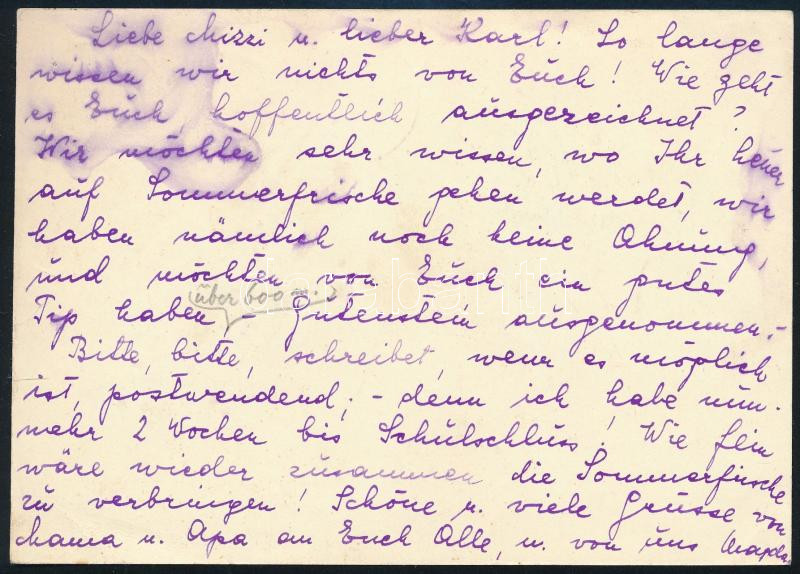 Liebe Mizzi u. lieber Karl! So lange
wissen wir nichts von Euch! Wie geht
es Euch, hoffentlich ausgezeichnet?
Wir möchten sehr wissen, wo Ihr heuer
auf Sommerfrische gehen werdet, wir
haben nämlich noch keine Ahnung,
und möchten von Euch ein gutes
über 600 m.
Tip haben, – Gutenstein ausgenommen. –
Bitte, bitte, schreibet, wenn es möglich
ist, postwendend; – denn ich habe nun-
mehr 2 Wochen bis Schulschluss! Wie fein
wäre wieder zusammen die Sommerfrische
zu verbringen! Schöne u. viele Grüsse von
Mama u. Apa an Euch Alle, u. von uns Magda.